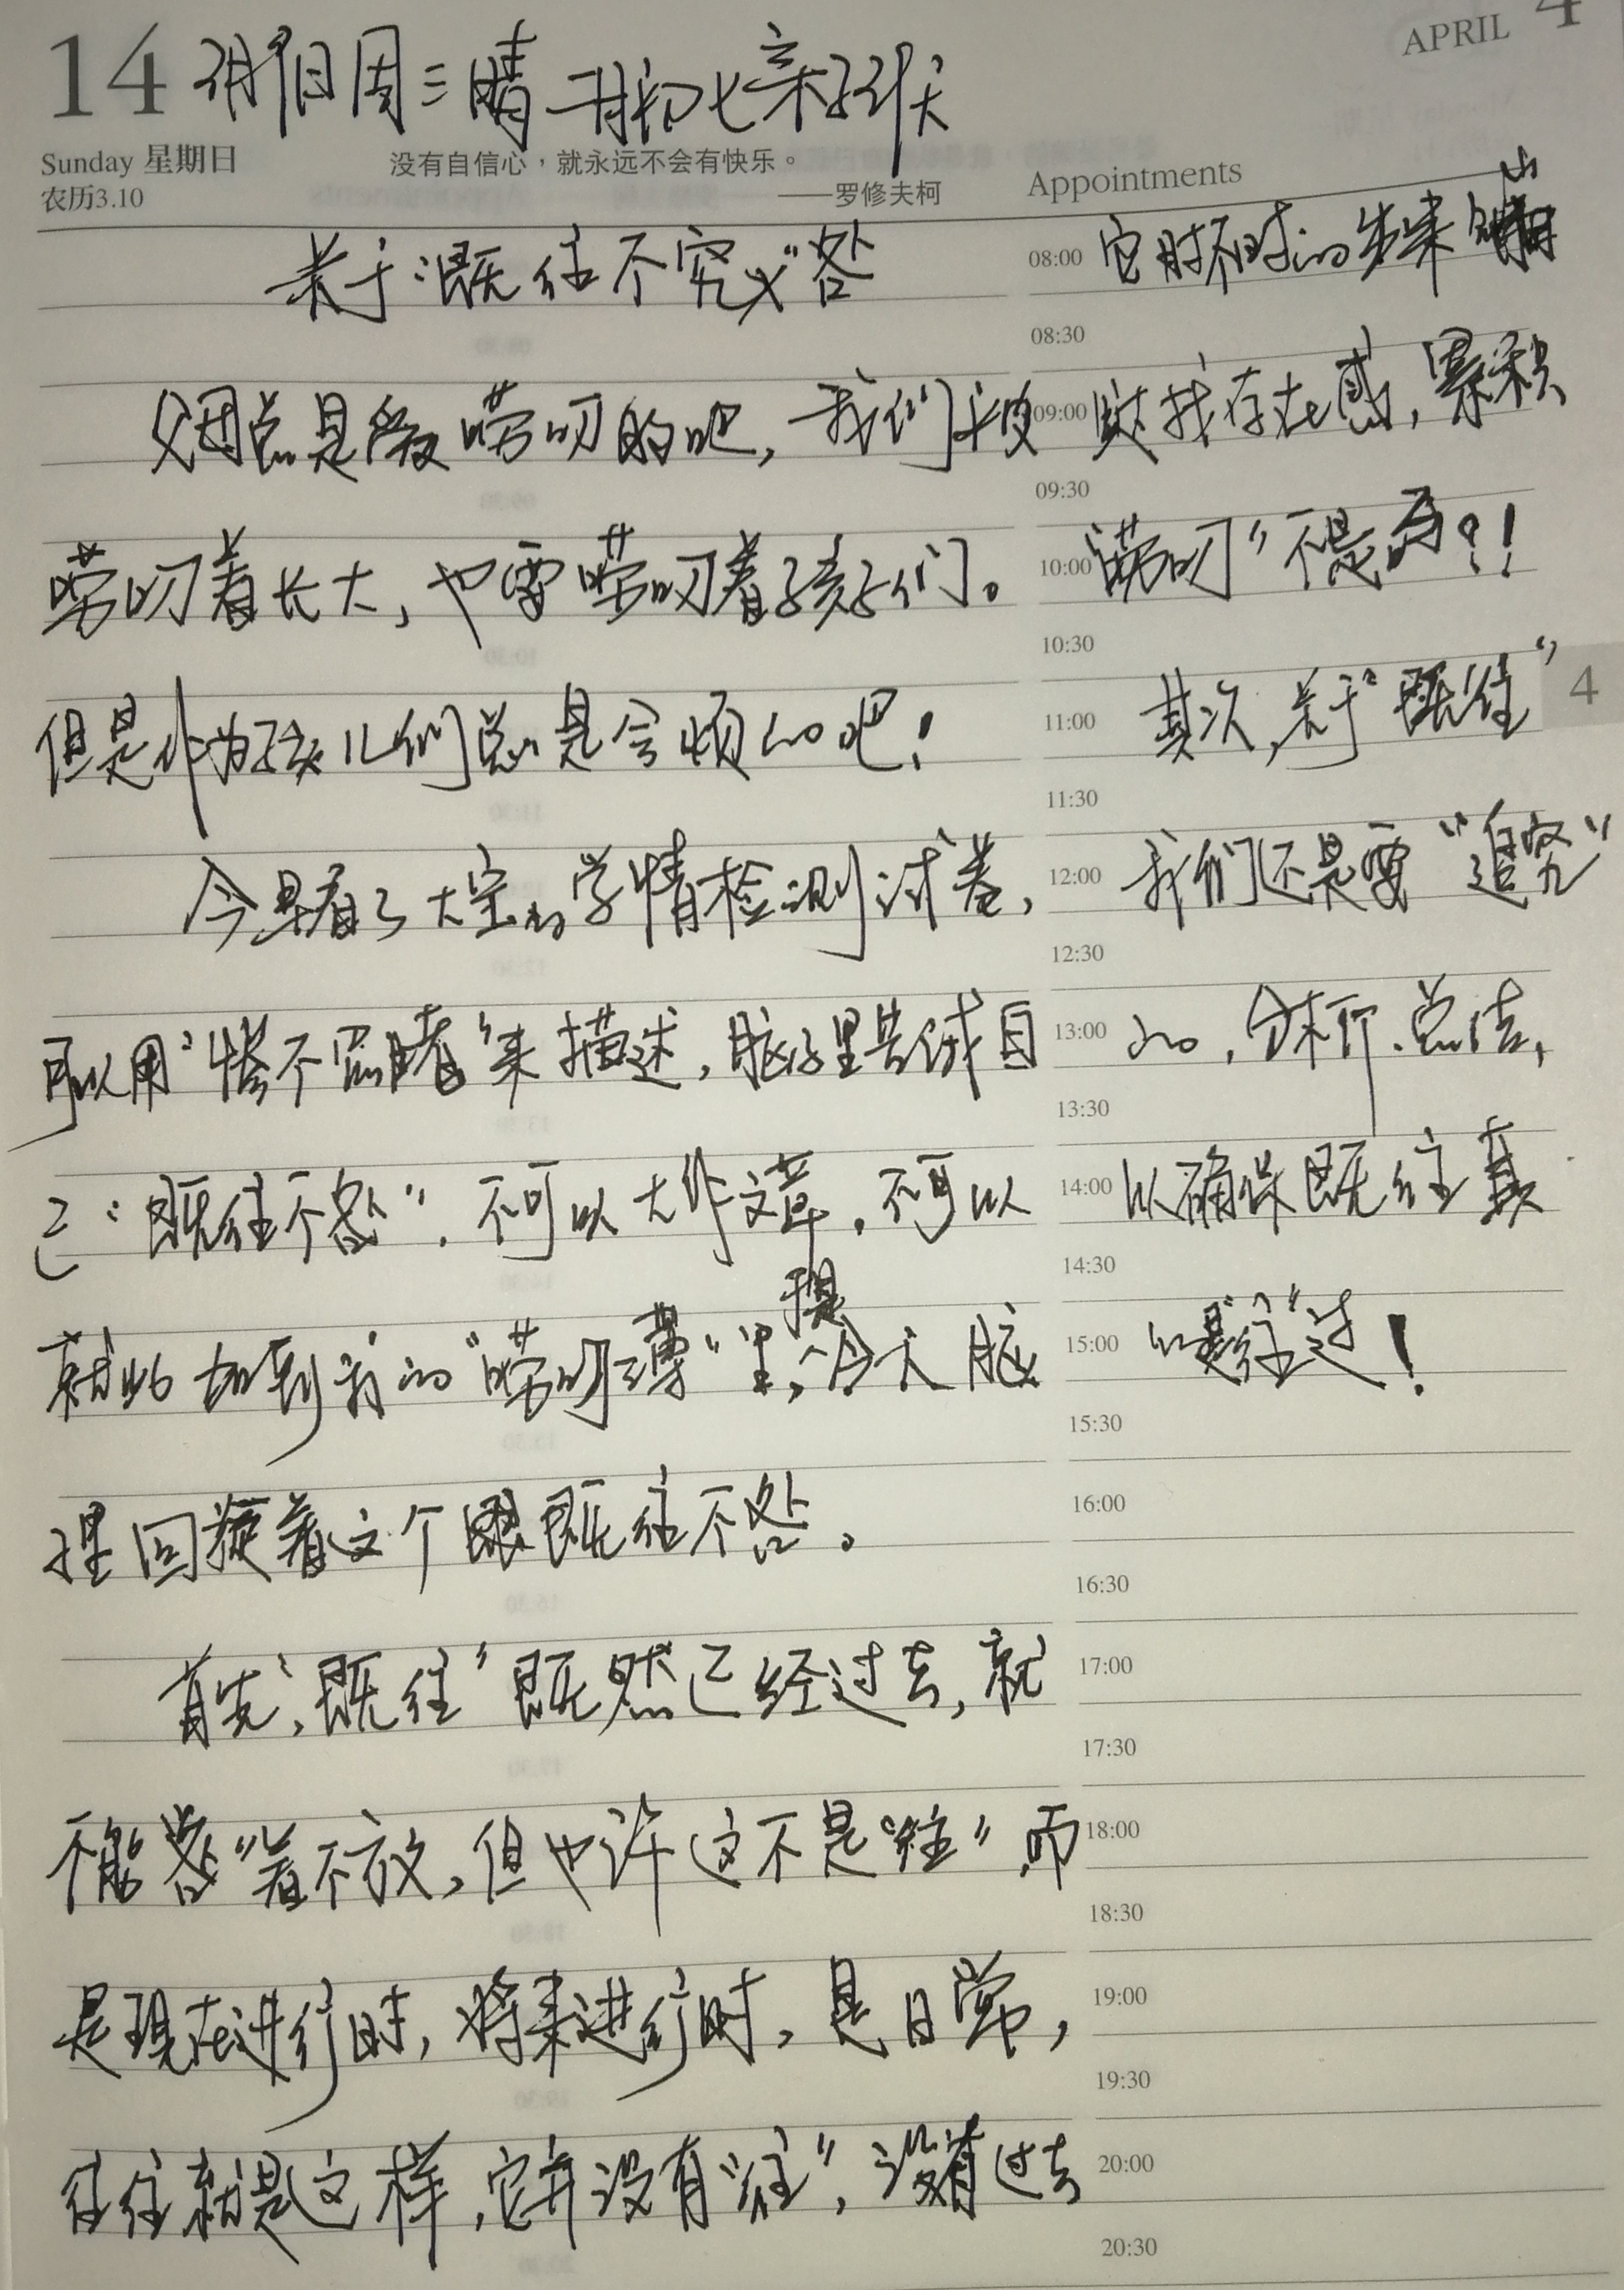 14
周三晴
APRIL 4
Sunday 星期日
农历3.10
没有自信心，就永远不会有快乐。
——罗修夫柯
关于“既往不究”咎
总是爱唠叨的吧，我们被
唠叨着长大，也要唠叨着孩子们。
但是作为孩儿们总是会烦的吧！
今早看了大宝的学情检测试卷，
可以用“惨不忍睹”来描述，脑子里告诫自
己“既往不咎”，不可以大作文章，不可以
就此加到我的“唠叨薄”里，今天脑
里回旋着这个既往不咎。
首先，“既往”既然已经过去，就
不能“咎”着不放，但也许这不是“往”，而
是现在进行时，将来进行时，是日常，
往往就是这样，它并没有“往”，没有过去
Appointments
08:00 它时不时的出来
08:30
09:00 找存在感，累积
09:30
10:00 “唠叨”不是吗？！
10:30
11:00 其次，关于“既往”
4
11:30
12:00 我们还是要“追究”
12:30
13:00 的，分析、总结，
13:30
14:00 以确保既往真
14:30
15:00 的是“往”过！
15:30
16:00
16:30
17:00
17:30
18:00
18:30
19:00
19:30
20:00
20:30